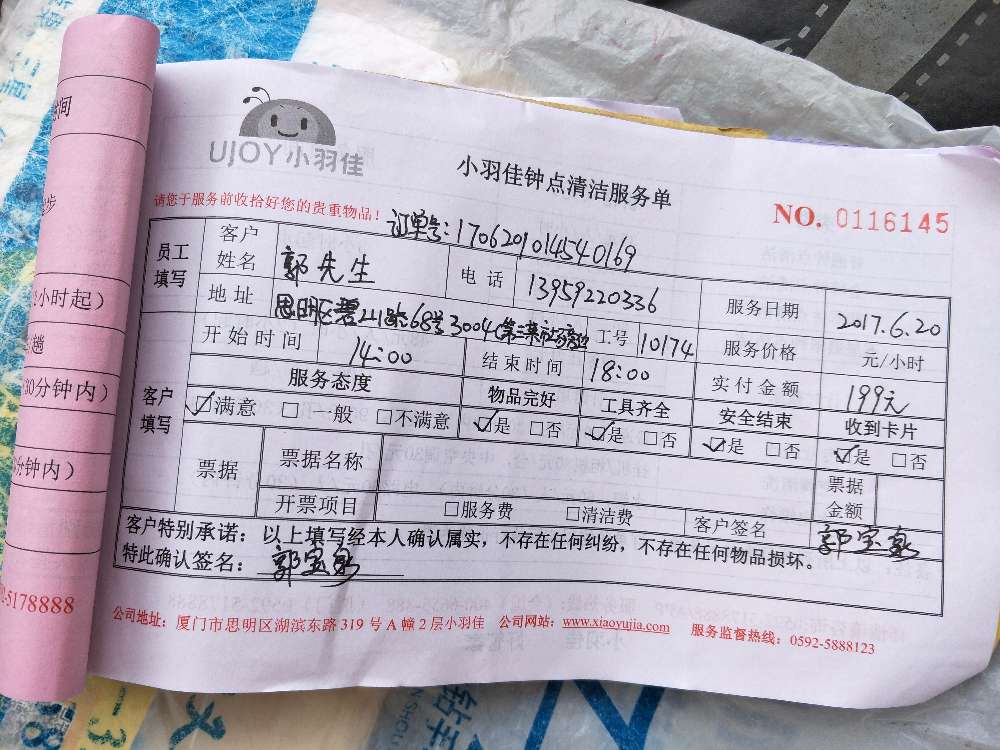 UJOY小羽佳
小羽佳钟点清洁服务单
请您于服务前收拾好您的贵重物品！
订单号：1706201014540169
NO. 0116145
员工填写 客户姓名 郭先生 电话 13959220336 服务日期 2017.6.20
地址 思明区碧山路68号3004(第三菜市场旁边 工号 10174 服务价格 元/小时
开始时间 14:00 结束时间 18:00 实付金额 199元
客户填写 服务态度 物品完好 工具齐全 安全结束 收到卡片
☑满意 □一般 □不满意 ☑是 □否 ☑是 □否 ☑是 □否 ☑是 □否
票据 票据名称 票据金额
开票项目 □服务费 □清洁费 客户签名 郭宝泉
客户特别承诺：以上填写经本人确认属实，不存在任何纠纷，不存在任何物品损坏。
特此确认签名：郭宝泉
公司地址：厦门市思明区湖滨东路319号A幢2层小羽佳 公司网站：www.xiaoyujia.com 服务监督热线：0592-5888123
小时起）
30分钟内）
分钟内）
-5178888